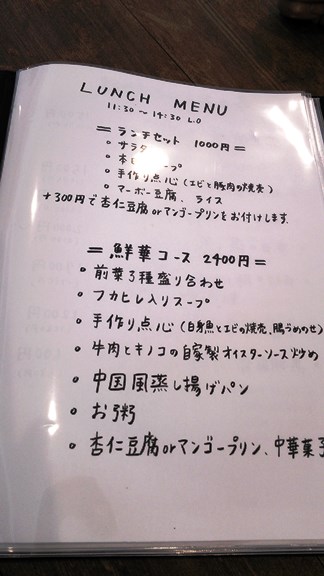 LUNCH MENU
11:30〜14:30 L.O
=ランチセット 1000円=
・サラダ
・本日 スープ
・手作り点心(エビと豚肉の焼売)
・マーボー豆腐、ライス
+300円で杏仁豆腐orマンゴープリンをお付けします.
=鮮華コース 2400円=
・前菜3種盛り合わせ
・フカヒレ入りスープ
・手作り点心(白身魚とエビの焼売、鶏うめのせ)
・牛肉とキノコの自家製オイスターソース炒め
・中国風蒸し揚げパン
・お粥
・杏仁豆腐orマンゴープリン、中華菓子